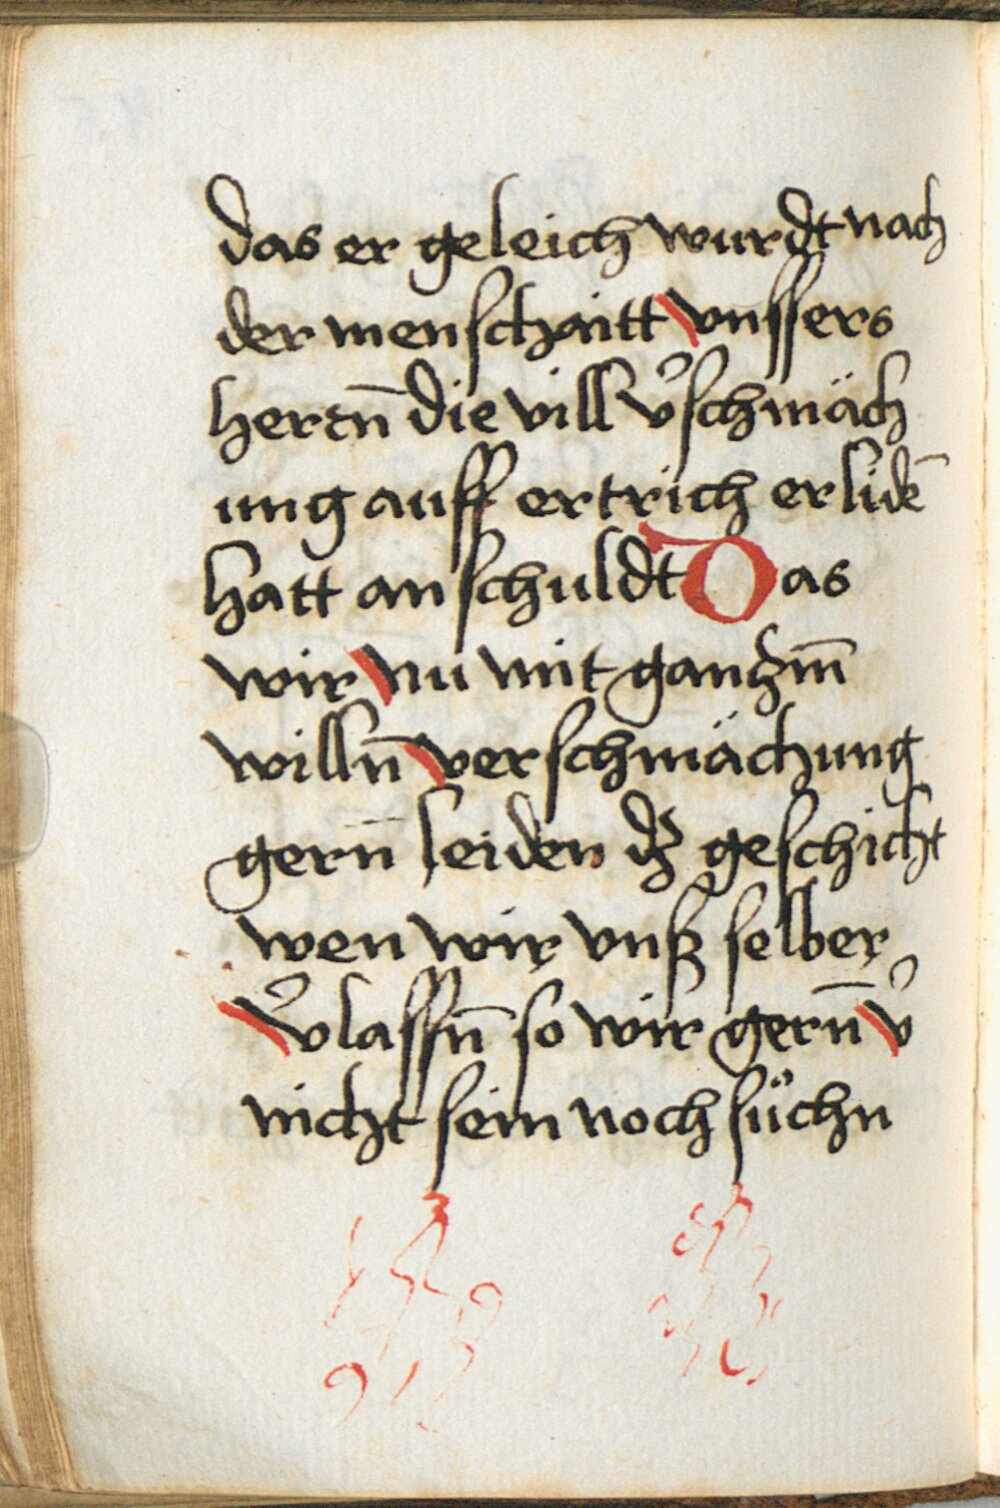 das er geleich wurdt nach
der menschaitt vnssers
herrn̄ die vill v᷑schmäch
ung auff ertrich erlidn̄
hatt an schuldt Das
wir nu mit gantzm̄
willn̄ verschmächung
gern̄ leiden dz geschicht
wen wir vnß selber
v᷑lassn̄ so wir gern̄ v᷑
nicht sein noch süchn